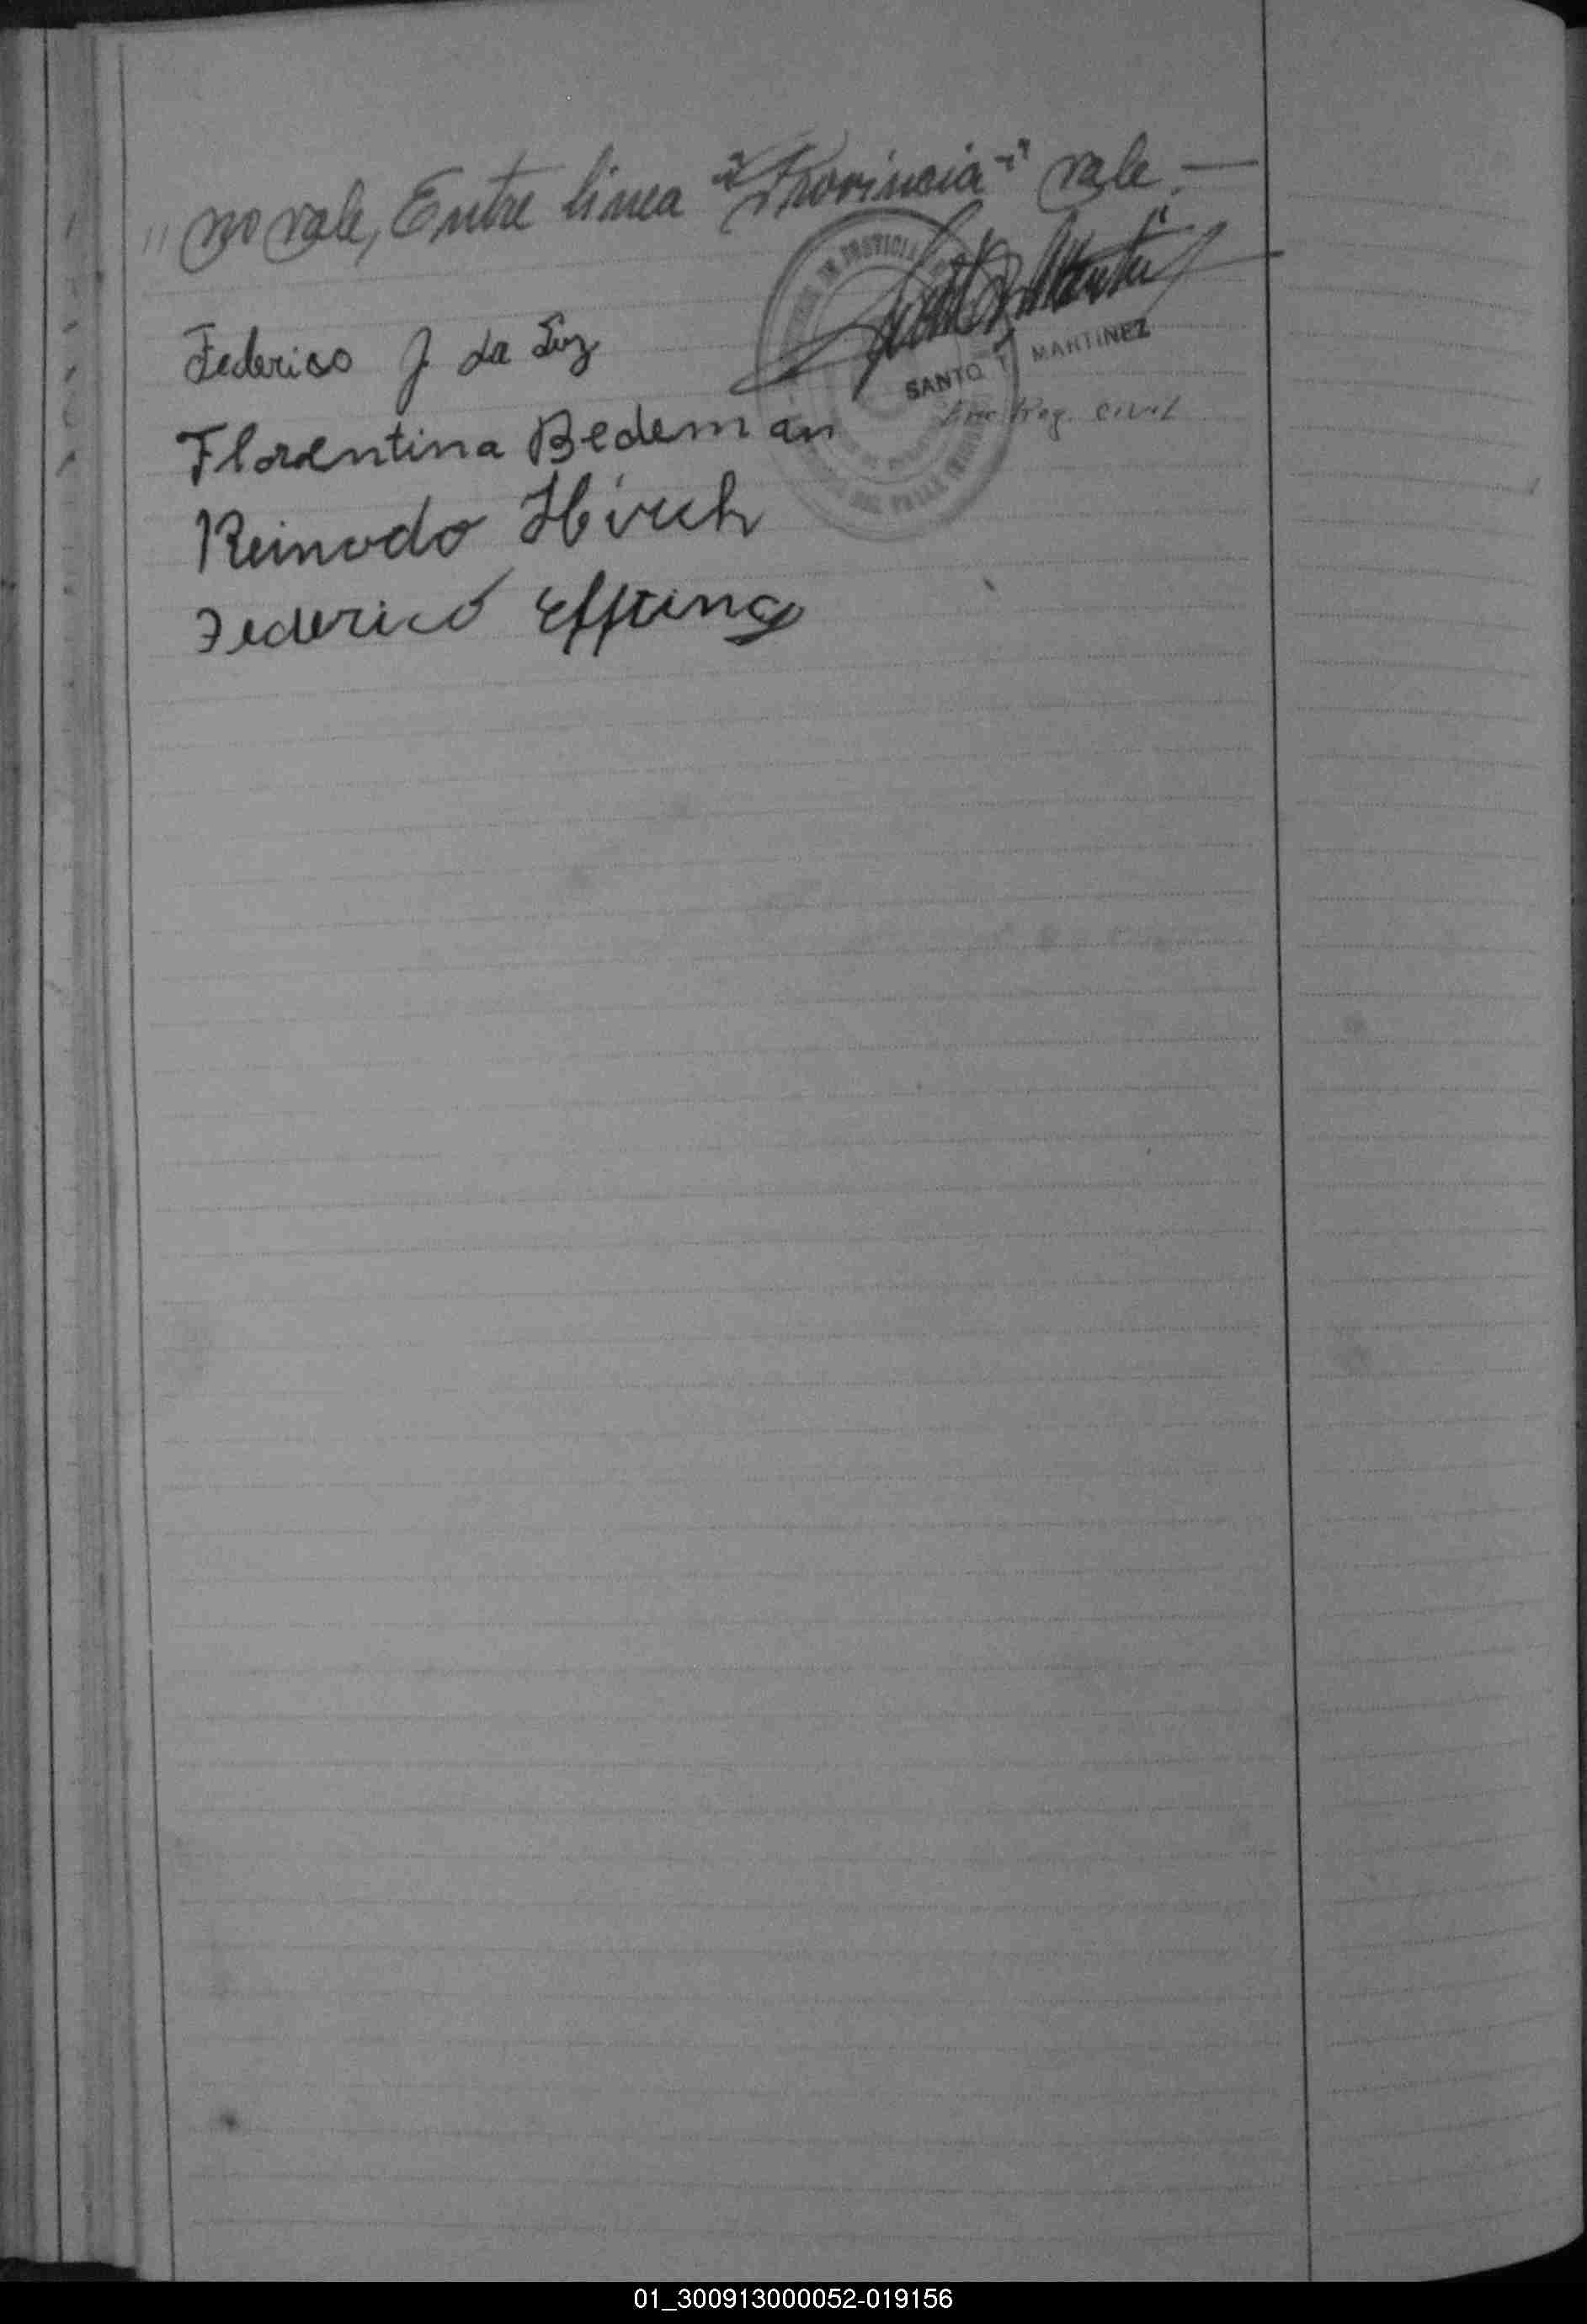 " no vale, Entre linea "Provincia" vale.—
SANTO T MARTINEZ
Enc Reg. Civil
Federico J da Luz
Florentina Bedeman
Reinodo Hirch
Federico Effting
01_300913000052-019156